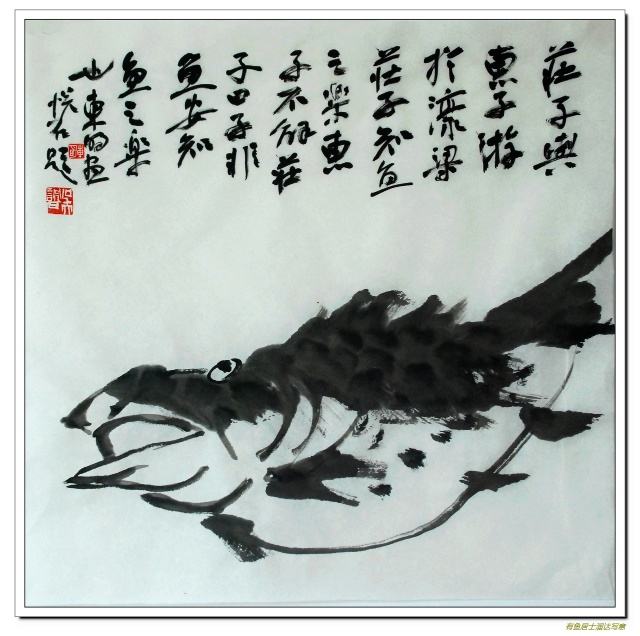 莊子與
惠子游
於濠梁
莊子知魚
之樂惠
子不解莊
子曰子非
魚安知
魚之樂
也東明画
石題
有鱼居士溜达写意